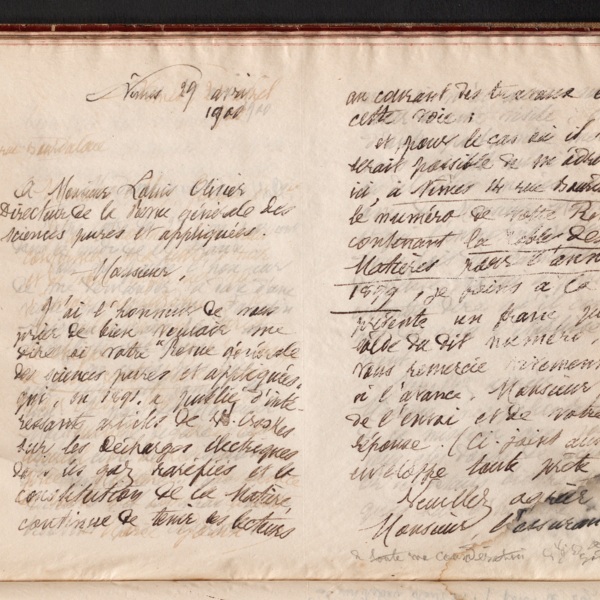 Nîmes 29 avril
1900
A Monsieur Louis Olivier
Directeur de la Revue générale des
sciences pures et appliquées.
Monsieur,
J'ai l'honneur de vous
prier de bien vouloir me
dire si votre "Revue générale
des sciences pures et appliquées,
qui, en 1891, a publié d'inté-
ressants articles de W. Crookes
sur les décharges électriques
dans les gaz raréfiés et la
constitution de la matière
continue de tenir ses lecteurs
au courant des travaux
cette voie;
et pour le cas où il
serait possible de m'adre
ici, à Nimes 14 rue
le numéro de votre Re
contenant la table des
Matières pour l'ann
1899, je joins à la
présente un franc
du dit numéro,
vous remercie vivement
à l'avance, Monsieur
de l'envoi et de votre
réponse. (Ci-joint
enveloppe toute prête
Veuillez agréer
Monsieur l'assuran
de toute ma considération